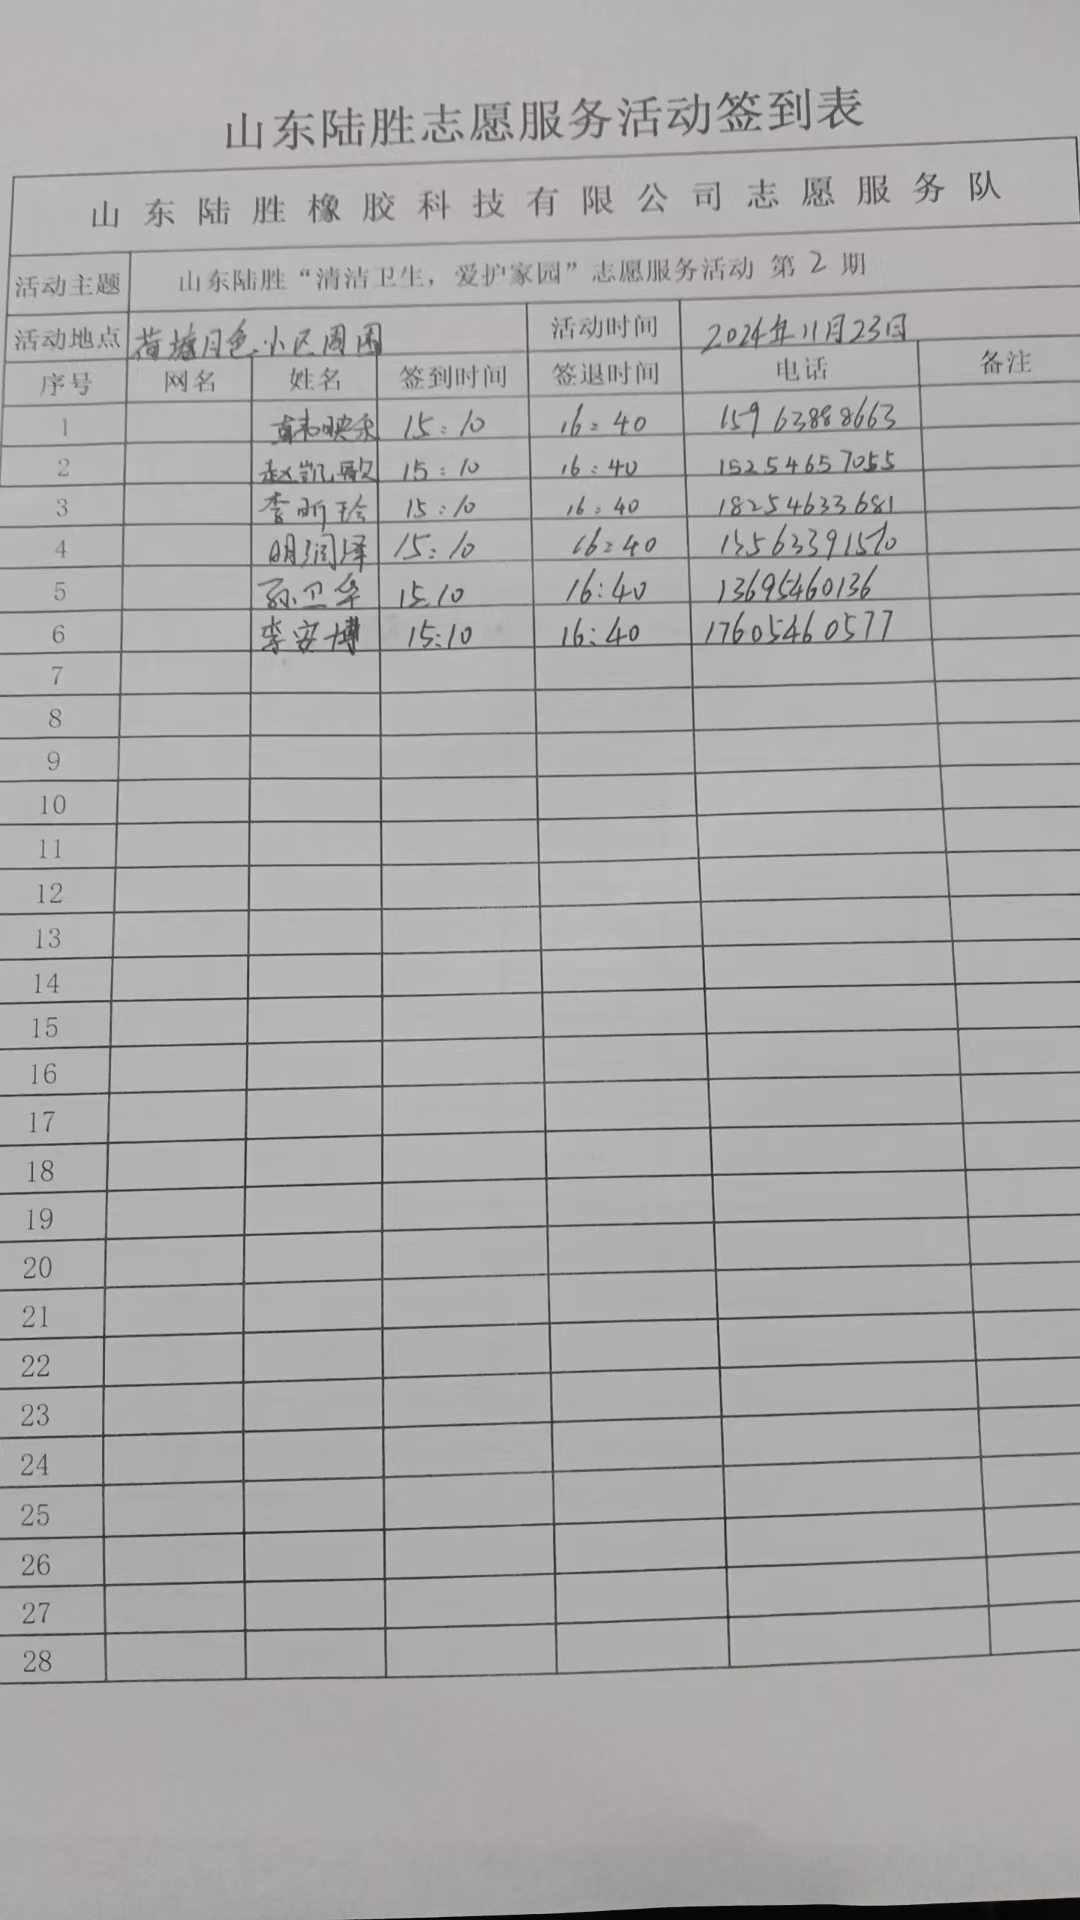 山东陆胜志愿服务活动签到表
山东陆胜橡胶科技有限公司志愿服务队
活动主题 山东陆胜“清洁卫生，爱护家园”志愿服务活动 第 2 期
活动地点 荷塘月色小区周围 活动时间 2024年11月23日
序号 网名 姓名 签到时间 签退时间 电话 备注
1 15:10 16:40 15963888663
2 赵凯歌 15:10 16:40 15254657055
3 李昕玲 15:10 16:40 18254633681
4 明润泽 15:10 16:40
5 孙卫华 15:10 16:40 13695460136
6 李安博 15:10 16:40 17605460577
7
8
9
10
11
12
13
14
15
16
17
18
19
20
21
22
23
24
25
26
27
28